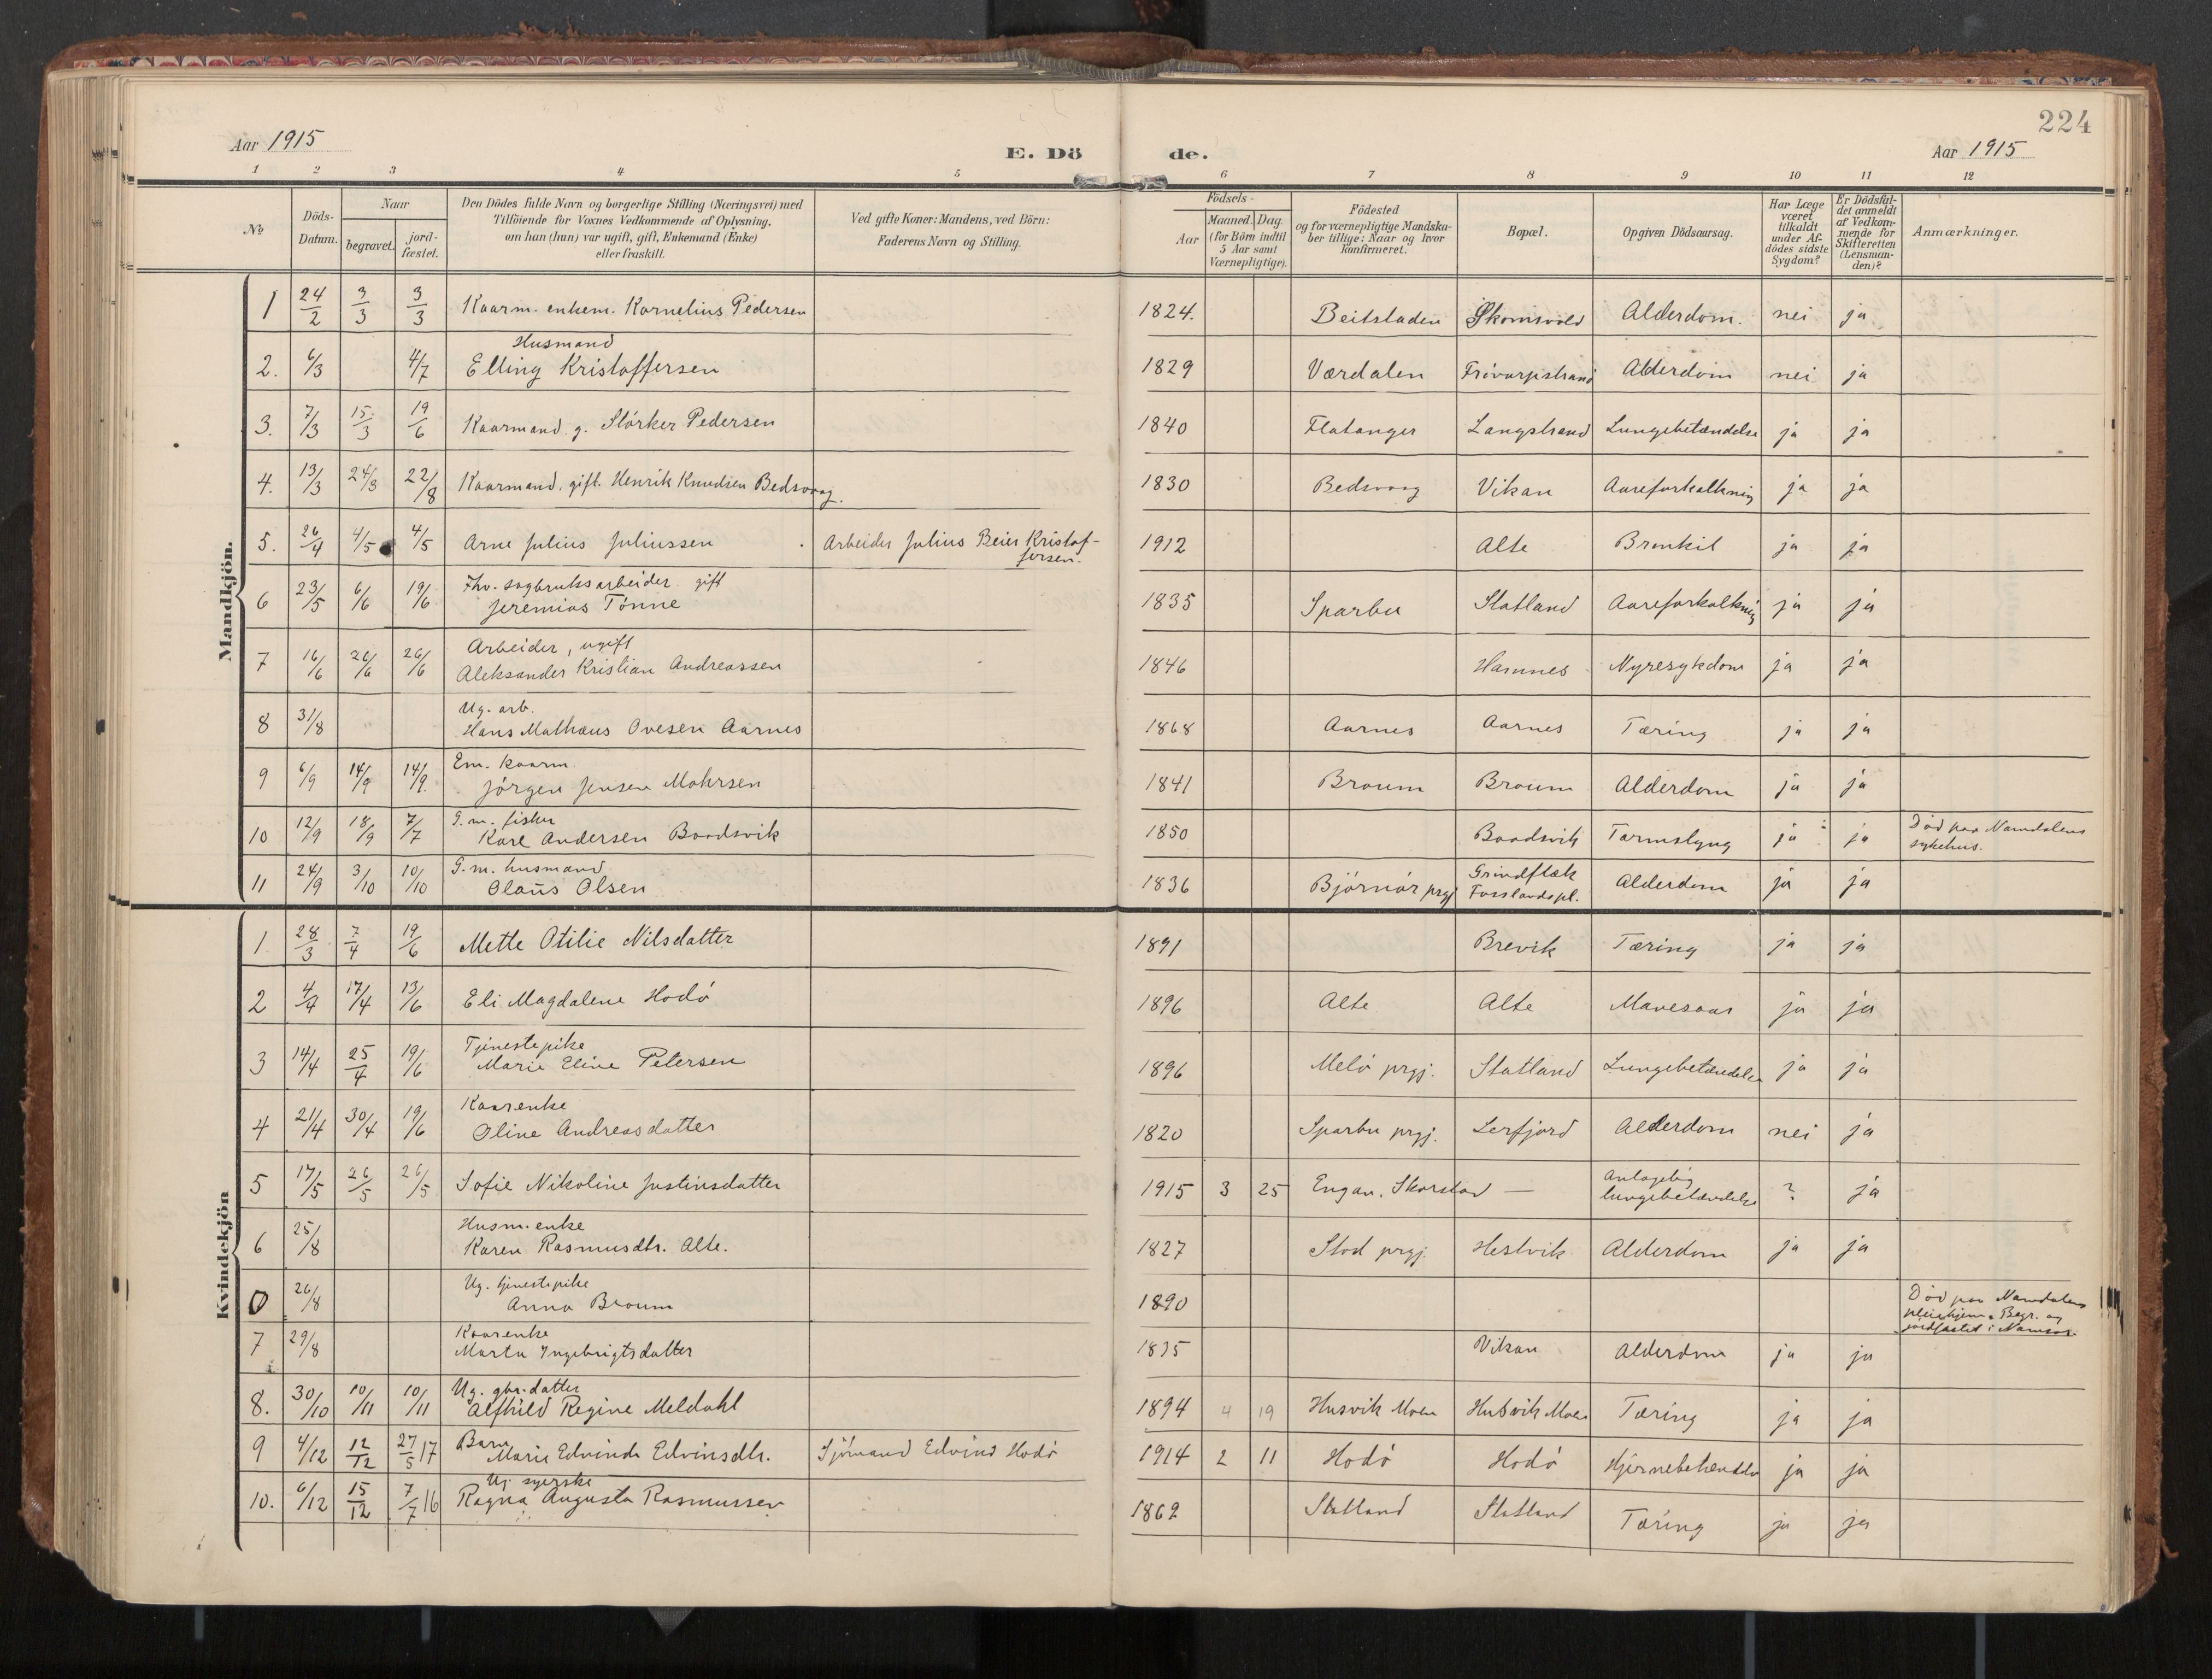 224
Aar 1915
E. Dö de.
Aar 1915
1 2 3 4 5 6 7 8 9 10 11 12
No
Döds-Datum.
Naar
begravet.
jord-fæstet.
Den Dödes fulde Navn og borgerlige Stilling (Næringsvei) med
Tilföiende for Voxnes Vedkommende af Oplysning,
om han (hun) var ugift, gift, Enkemand (Enke)
eller fraskilt.
Ved gifte Koner: Mandens, ved Börn:
Faderens Navn og Stilling.
Födsels-
Aar
Maaned. Dag.
(for Börn indtil
5 Aar samt
Værnepligtige).
Födested
og for værnepligtige Mandska-
ber tillige: Naar og hvor
konfirmeret.
Bopæl.
Opgiven Dödsaarsag.
Har Læge
været
tilkaldt
under Af-
dödes sidste
Sygdom?
Er Dödsfal-
det anmeldt
af Vedkom-
mende for
Skifteretten
(Lensman-
den)?
Anmærkninger.
Mandkjön.
1 24/2 3/3 3/3 Kaarm. enkem. Kornelius Pedersen 1824. Beitstaden Skomsvold Alderdom. nei ja
Husmand
2. 6/3 4/7 Elling Kristoffersen 1829 Værdalen Frövarpstrand Alderdom nei ja
3. 7/3 15/3 19/6 Kaarmand g. Störker Pedersen 1840 Flatanger Langstrand Lungebetændelse ja ja
4. 13/3 24/3 22/8 Kaarmand. gift. Henrik Knudsen Bedsvaag. 1830 Bedsvaag Vikan Aareforkalkning ja ja
5. 26/4 4/5 4/5 Arne Julius Juliussen Arbeider Julius Beier Kristof-
fersen. 1912 Alte Bronkit ja ja
Fhv. sagbruksarbeider gift
6 23/5 6/6 19/6 Jeremias Tønne 1835 Sparbu Statland Aareforkalkning ja ja
Arbeider, ugift
7 16/6 26/6 26/6 Aleksander Kristian Andreassen 1846 Hamnes Nyresykdom ja ja
Ug. arb.
8 31/8 Hans Mathæus Ovesen Aarnes 1868 Aarnes Aarnes Tæring ja ja
Em. kaarm.
9 6/9 14/9 14/9. Jörgen Jensen Mohrsen 1841 Braum Braum Alderdom ja ja
G.m. fisker
10 12/9 18/9 7/7 Kare Andersen Baadsvik 1850 Baadsvik Tarmslyng ja ja Död paa Namdalens
sykehus.
G.m. husmand
11 24/9 3/10 10/10 Olaus Olsen 1836 Björnör prgj Grindflæk
Fosslandspl. Alderdom ja ja
Kvindekjön
1. 28/3 7/4 19/6 Mette Otilie Nilsdatter 1891 Brevik Tæring ja ja
2 4/4 17/4 13/6 Eli Magdalene Hodö 1896 Alte Alte Mavesaar ja ja
Tjenestepike
3 14/4 25/4 19/6 Marie Eline Petersen 1896 Melö prgj. Statland Lungebetændelse ja ja
Kaarenke
4 21/4 30/4 19/6 Oline Andreasdatter 1820 Sparbu prgj. Lerfjord Alderdom nei ja
5 17/5 26/5 26/5 Sofie Nikoline Justinsdatter 1915 3 25 Engan. Skorstad — Antagelig
lungebetændelse ? ja
Husm. enke
6 25/8 Karen Rasmusdtr. Alte. 1827 Stod prgj. Hestvik Alderdom ja ja
Ug. tjenestepike
0 26/8 Anna Braum 1890 Död paa Namdalens
pleiehjem. Begr. og
jordfæstet i Namsos.
Kaarenke
7 29/8 Marta Ingebrigtsdatter 1835 Vikan Alderdom ja ja
Ug. gbr. datter
8. 30/10 10/11 10/11 Alfhild Regine Meldahl 1894 4 19 Husvik Moen Husvik Moen Tæring ja ja
Barn
9 4/12 12/12 27/5 17 Marie Edvinda Edvinsdtr. Sjömand Edvind Hodö 1914 2 11 Hodö Hodö Hjernebetændelse ja ja
Ug. syerske
10. 6/12 15/12 7/7 16 Ragna Augusta Rasmussen 1862 Statland Statland Tæring ja ja